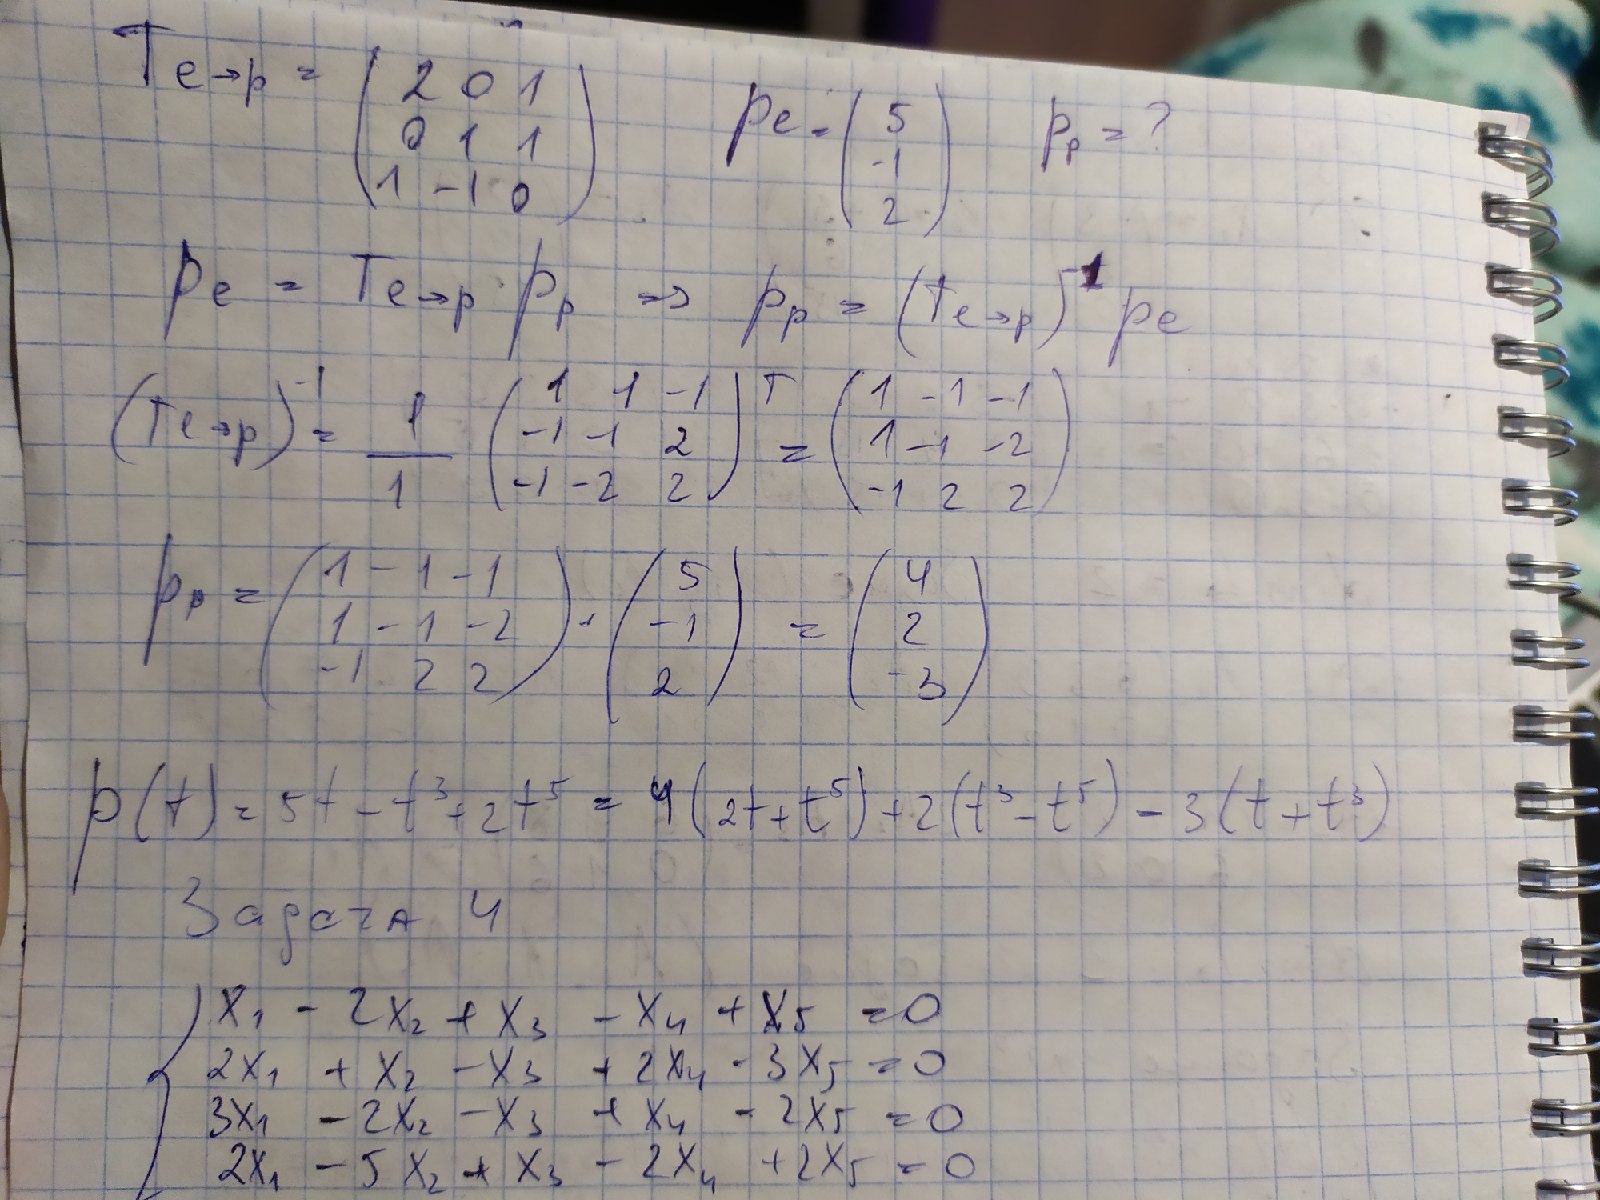 Te→p = (2 0 1
0 1 1
1 -1 0) pe = (5
-1
2) pp = ?
pe = Te→p pp => pp = (Te→p)⁻¹ pe
(Te→p)⁻¹ = 1/1 (1 1 -1
-1 -1 2
-1 -2 2)ᵀ = (1 -1 -1
1 -1 -2
-1 2 2)
pp = (1 -1 -1
1 -1 -2
-1 2 2) · (5
-1
2) = (4
2
-3)
p(t) = 5t - t³ + 2t⁵ = 4(2t + t⁵) + 2(t³ - t⁵) - 3(t + t³)
Задача 4
{ x₁ - 2x₂ + x₃ - x₄ + x₅ = 0
2x₁ + x₂ - x₃ + 2x₄ - 3x₅ = 0
3x₁ - 2x₂ - x₃ + x₄ - 2x₅ = 0
2x₁ - 5x₂ + x₃ - 2x₄ + 2x₅ = 0